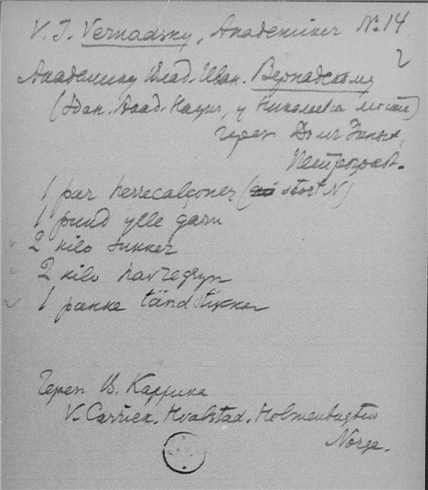 V. J. Vernadsky, Академикъ № 14
2
Академику Влад. Иван. Вернадскому
(Здан. Акад. Наукъ, у Николаевск. моста)
черезъ Домъ Ученых,
Петроград.
1 par herrecalçoner (stort N)
1 pund ylle garn
2 kilo sukker
2 kilo havregryn
1 pakke tändstikker
Через В. Каррика
V. Carrick, Hvalstad, Holmenbugten
Norge.